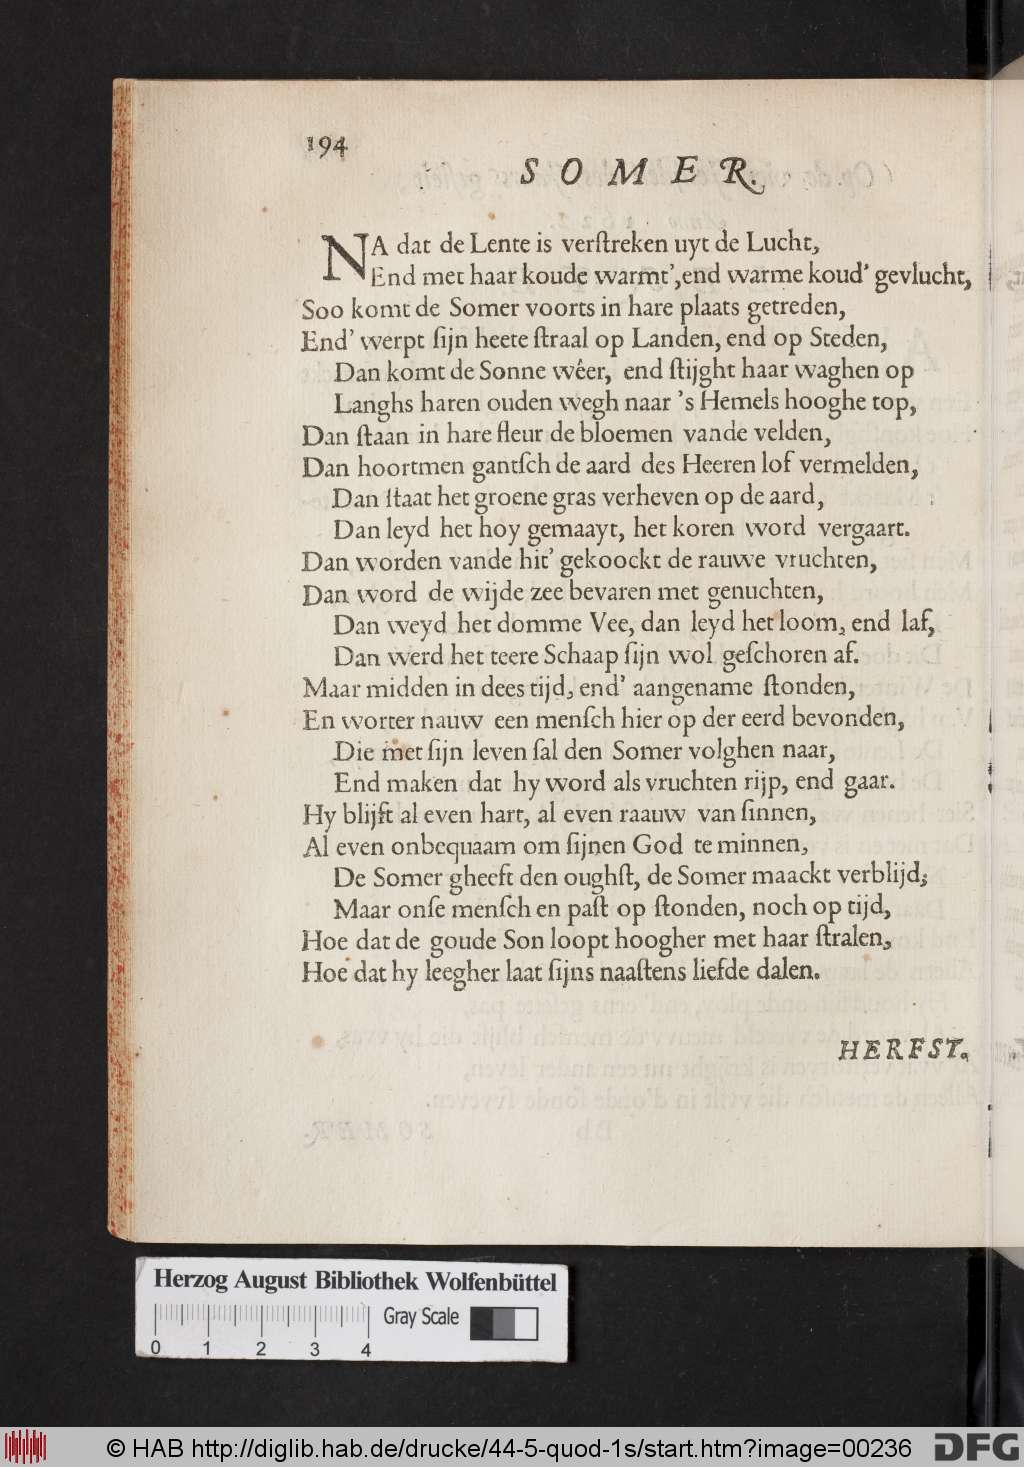 194
SOMER.
NA dat de Lente is verſtreken uyt de Lucht,
End met haar koude warmt', end warme koud' gevlucht,
Soo komt de Somer voorts in hare plaats getreden,
End' werpt ſijn heete ſtraal op Landen, end op Steden,
Dan komt de Sonne wêer, end ſtijght haar waghen op
Langhs haren ouden wegh naar 's Hemels hooghe top,
Dan ſtaan in hare fleur de bloemen vande velden,
Dan hoortmen gantſch de aard des Heeren lof vermelden,
Dan ſtaat het groene gras verheven op de aard,
Dan leyd het hoy gemaayt, het koren word vergaart.
Dan worden vande hit' gekoockt de rauwe vruchten,
Dan word de wijde zee bevaren met genuchten,
Dan weyd het domme Vee, dan leyd het loom, end laf,
Dan werd het teere Schaap ſijn wol geſchoren af.
Maar midden in dees tijd, end' aangename ſtonden,
En worter nauw een menſch hier op der eerd bevonden,
Die met ſijn leven ſal den Somer volghen naar,
End maken dat hy word als vruchten rijp, end gaar.
Hy blijft al even hart, al even raauw van ſinnen,
Al even onbequaam om ſijnen God te minnen,
De Somer gheeft den oughſt, de Somer maackt verblijd;
Maar onſe menſch en paſt op ſtonden, noch op tijd,
Hoe dat de goude Son loopt hoogher met haar ſtralen,
Hoe dat hy leegher laat ſijns naaſtens liefde dalen.
HERFST.
Herzog August Bibliothek Wolfenbüttel
Gray Scale
0 1 2 3 4
© HAB http://diglib.hab.de/drucke/44-5-quod-1s/start.htm?image=00236
DFG